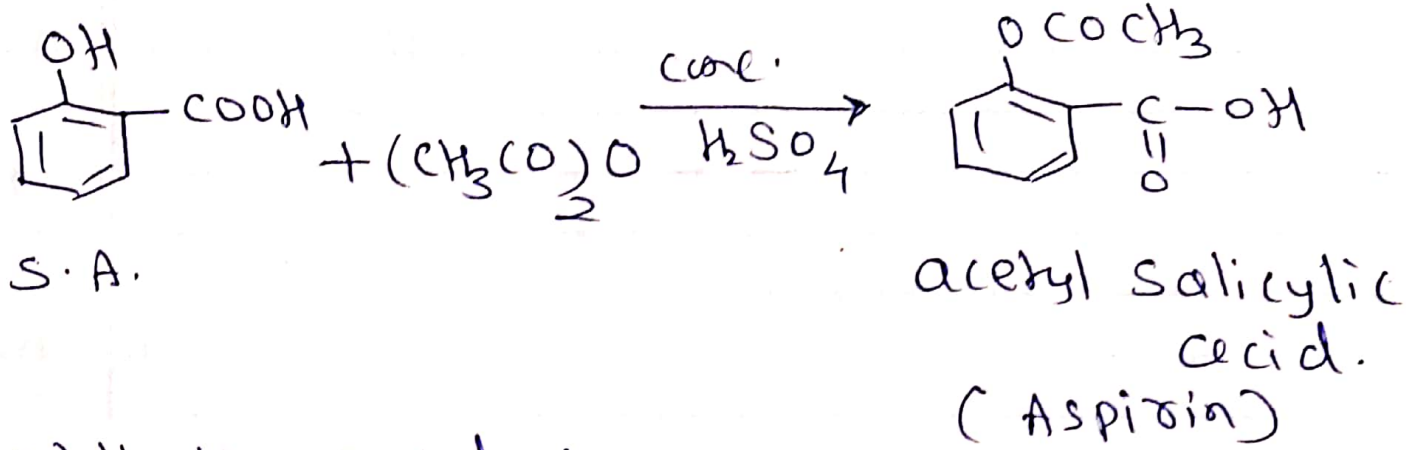 OH
COOH
+ (CH3CO)2O
conc.
H2SO4
OCOCH3
C-OH
O
S.A.
acetyl Salicylic
acid.
(Aspirin)